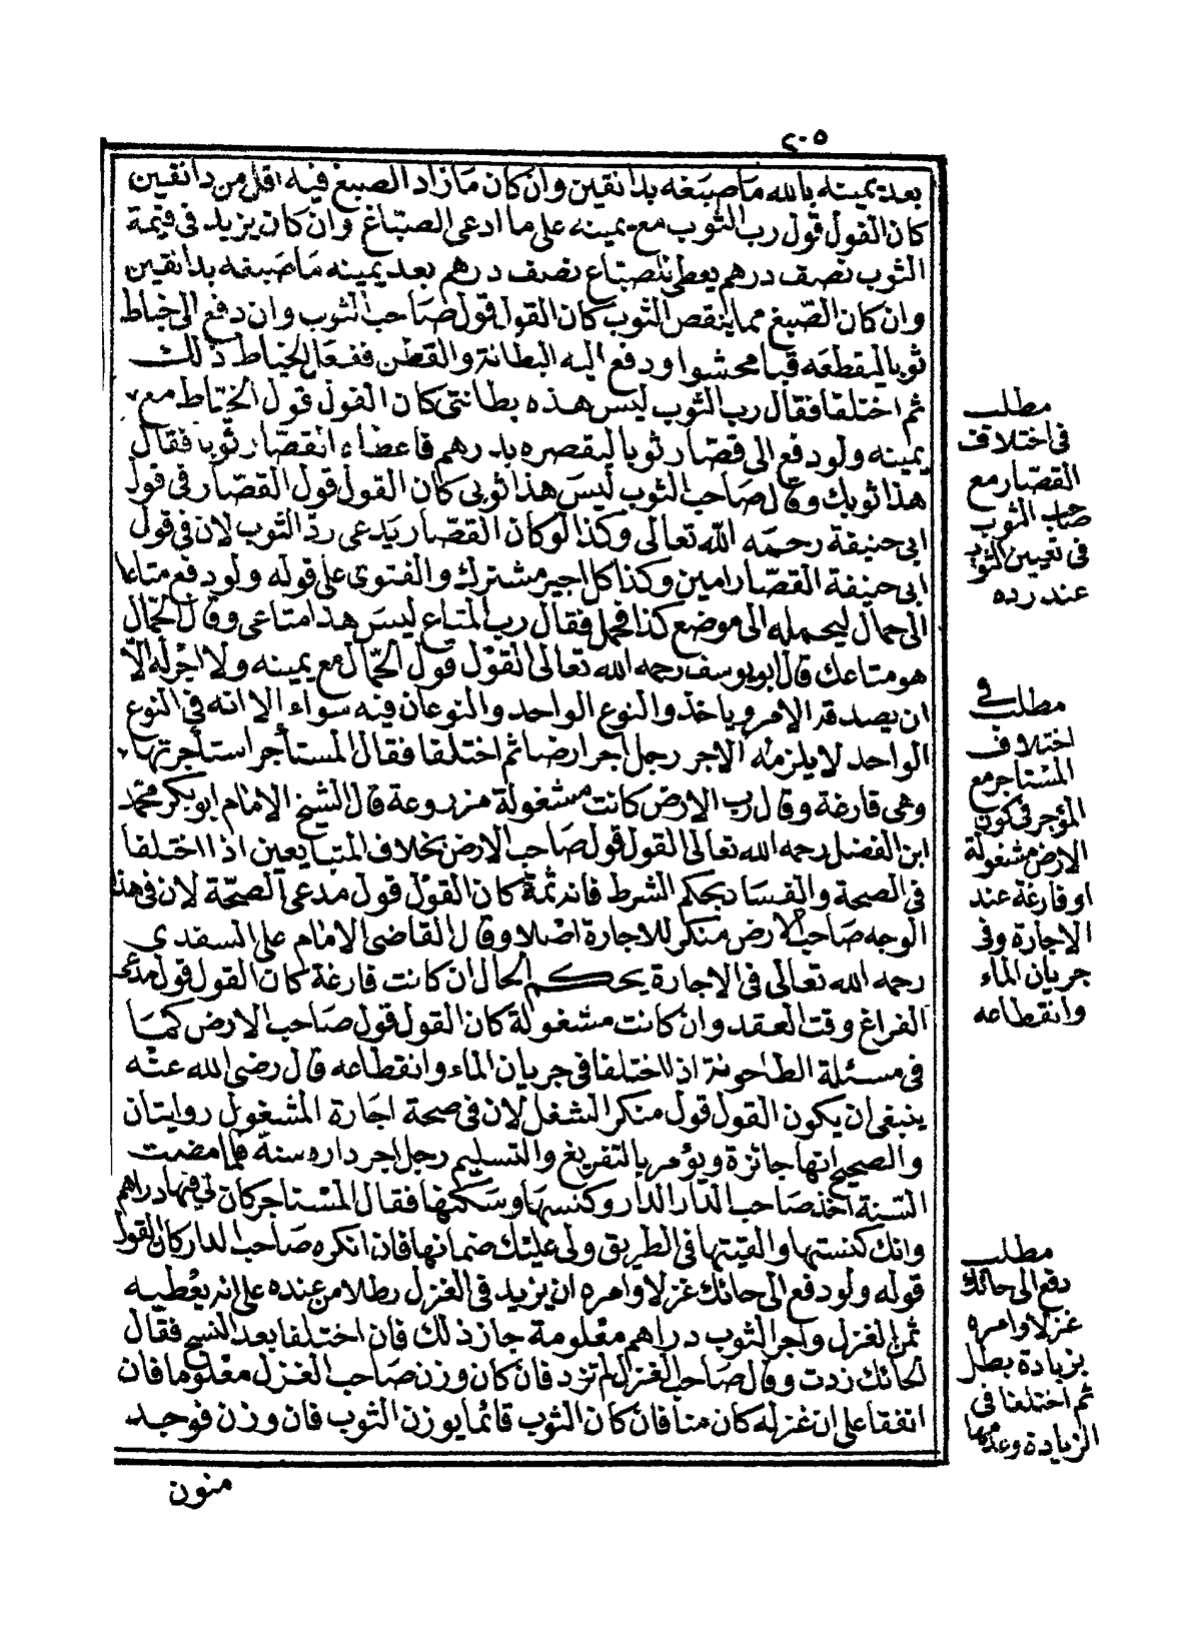 ٢٠٥
بعد يمينه بالله ما صبغه بدانقين وان كان ما زاد الصبغ فيه اقل من دانقين
كان القول قول رب الثوب مع يمينه على ما ادعى الصباغ وان كان يزيد في قيمة
الثوب نصف درهم يعطى للصباغ نصف درهم بعد يمينه ما صبغه بدانقين
وان كان الصبغ مما ينقص الثوب كان القول قول صاحب الثوب وان دفع الى خياط
ثوبا ليقطعه قبا محشوا ودفع اليه البطانة والقطن ففعل الخياط ذلك
ثم اختلفا فقال رب الثوب ليس هذه بطانتى كان القول قول الخياط مع
يمينه ولو دفع الى قصار ثوبا ليقصره بدرهم فاعطاه القصار ثوبا فقال
هذا ثوبك وقال صاحب الثوب ليس هذا ثوبى كان القول قول القصار في قول
ابى حنيفة رحمه الله تعالى وكذا لو كان القصار يدعى رد الثوب لان في قول
ابى حنيفة القصار امين وكذا كل اجير مشترك والفتوى على قوله ولو دفع متاعا
الى حمال ليحمله الى موضع كذا فحمل فقال رب المتاع ليس هذا متاعى وقال الحمال
هو متاعك قال ابو يوسف رحمه الله تعالى القول قول الحمال مع يمينه ولا اجر له الا
ان يصدقه الامر وياخذ والنوع الواحد والنوعان فيه سواء الا انه في النوع
الواحد لا يلزمه الاجر رجل اجر ارضا ثم اختلفا فقال المستأجر استأجرتها
وهى فارغة وقال رب الارض كانت مشغولة مزروعة قال الشيخ الامام ابو بكر محمد
ابن الفضل رحمه الله تعالى القول قول صاحب الارض بخلاف المتبايعين اذا اختلفا
في الصحة والفساد بحكم الشرط فانه ثمة كان القول قول مدعى الصحة لان في هذا
الوجه صاحب الارض منكر للاجارة اصلا وقال القاضى الامام على السغدى
رحمه الله تعالى في الاجارة يحكم الحال ان كانت فارغة كان القول قول مدعى
الفراغ وقت العقد وان كانت مشغولة كان القول قول صاحب الارض كما
في مسئلة الطاحونة اذا اختلفا في جريان الماء وانقطاعه قال رضى الله عنه
ينبغى ان يكون القول قول منكر الشغل لان في صحة اجارة المشغول روايتان
والصحيح انها جائزة ويؤمر بالتفريغ والتسليم رجل اجر داره سنة فلما مضت
السنة اخذ صاحب الدار الدار وكنسها وسكنها فقال المستاجر كان لى فيها دراهم
وانك كنستها والقيتها في الطريق ولى عليك ضمانها فان انكره صاحب الدار كان القول
قوله ولو دفع الى حائك غزلا وامره ان يزيد في الغزل رطلا من عنده على انه يعطيه
ثمن الغزل واجر الثوب دراهم معلومة جاز ذلك فان اختلفا بعد النسج فقال
الحائك زدت وقال صاحب الغزل لم تزد فان كان وزن صاحب الغزل معلوما فان
اتفقا على ان غزله كان منا فان كان الثوب قائما يوزن الثوب فان وزن فوجد
منون
مطلب
في اختلاف
القصار مع
صاحب الثوب
في تعيين الثوب
عند رده
مطلب في
اختلاف
المستاجر مع
المؤجر في كون
الارض مشغولة
او فارغة عند
الاجارة وفي
جريان الماء
وانقطاعه
مطلب
دفع الى حائك
غزلا وامره
بزيادة رطل
ثم اختلفا في
الزيادة وعدمها